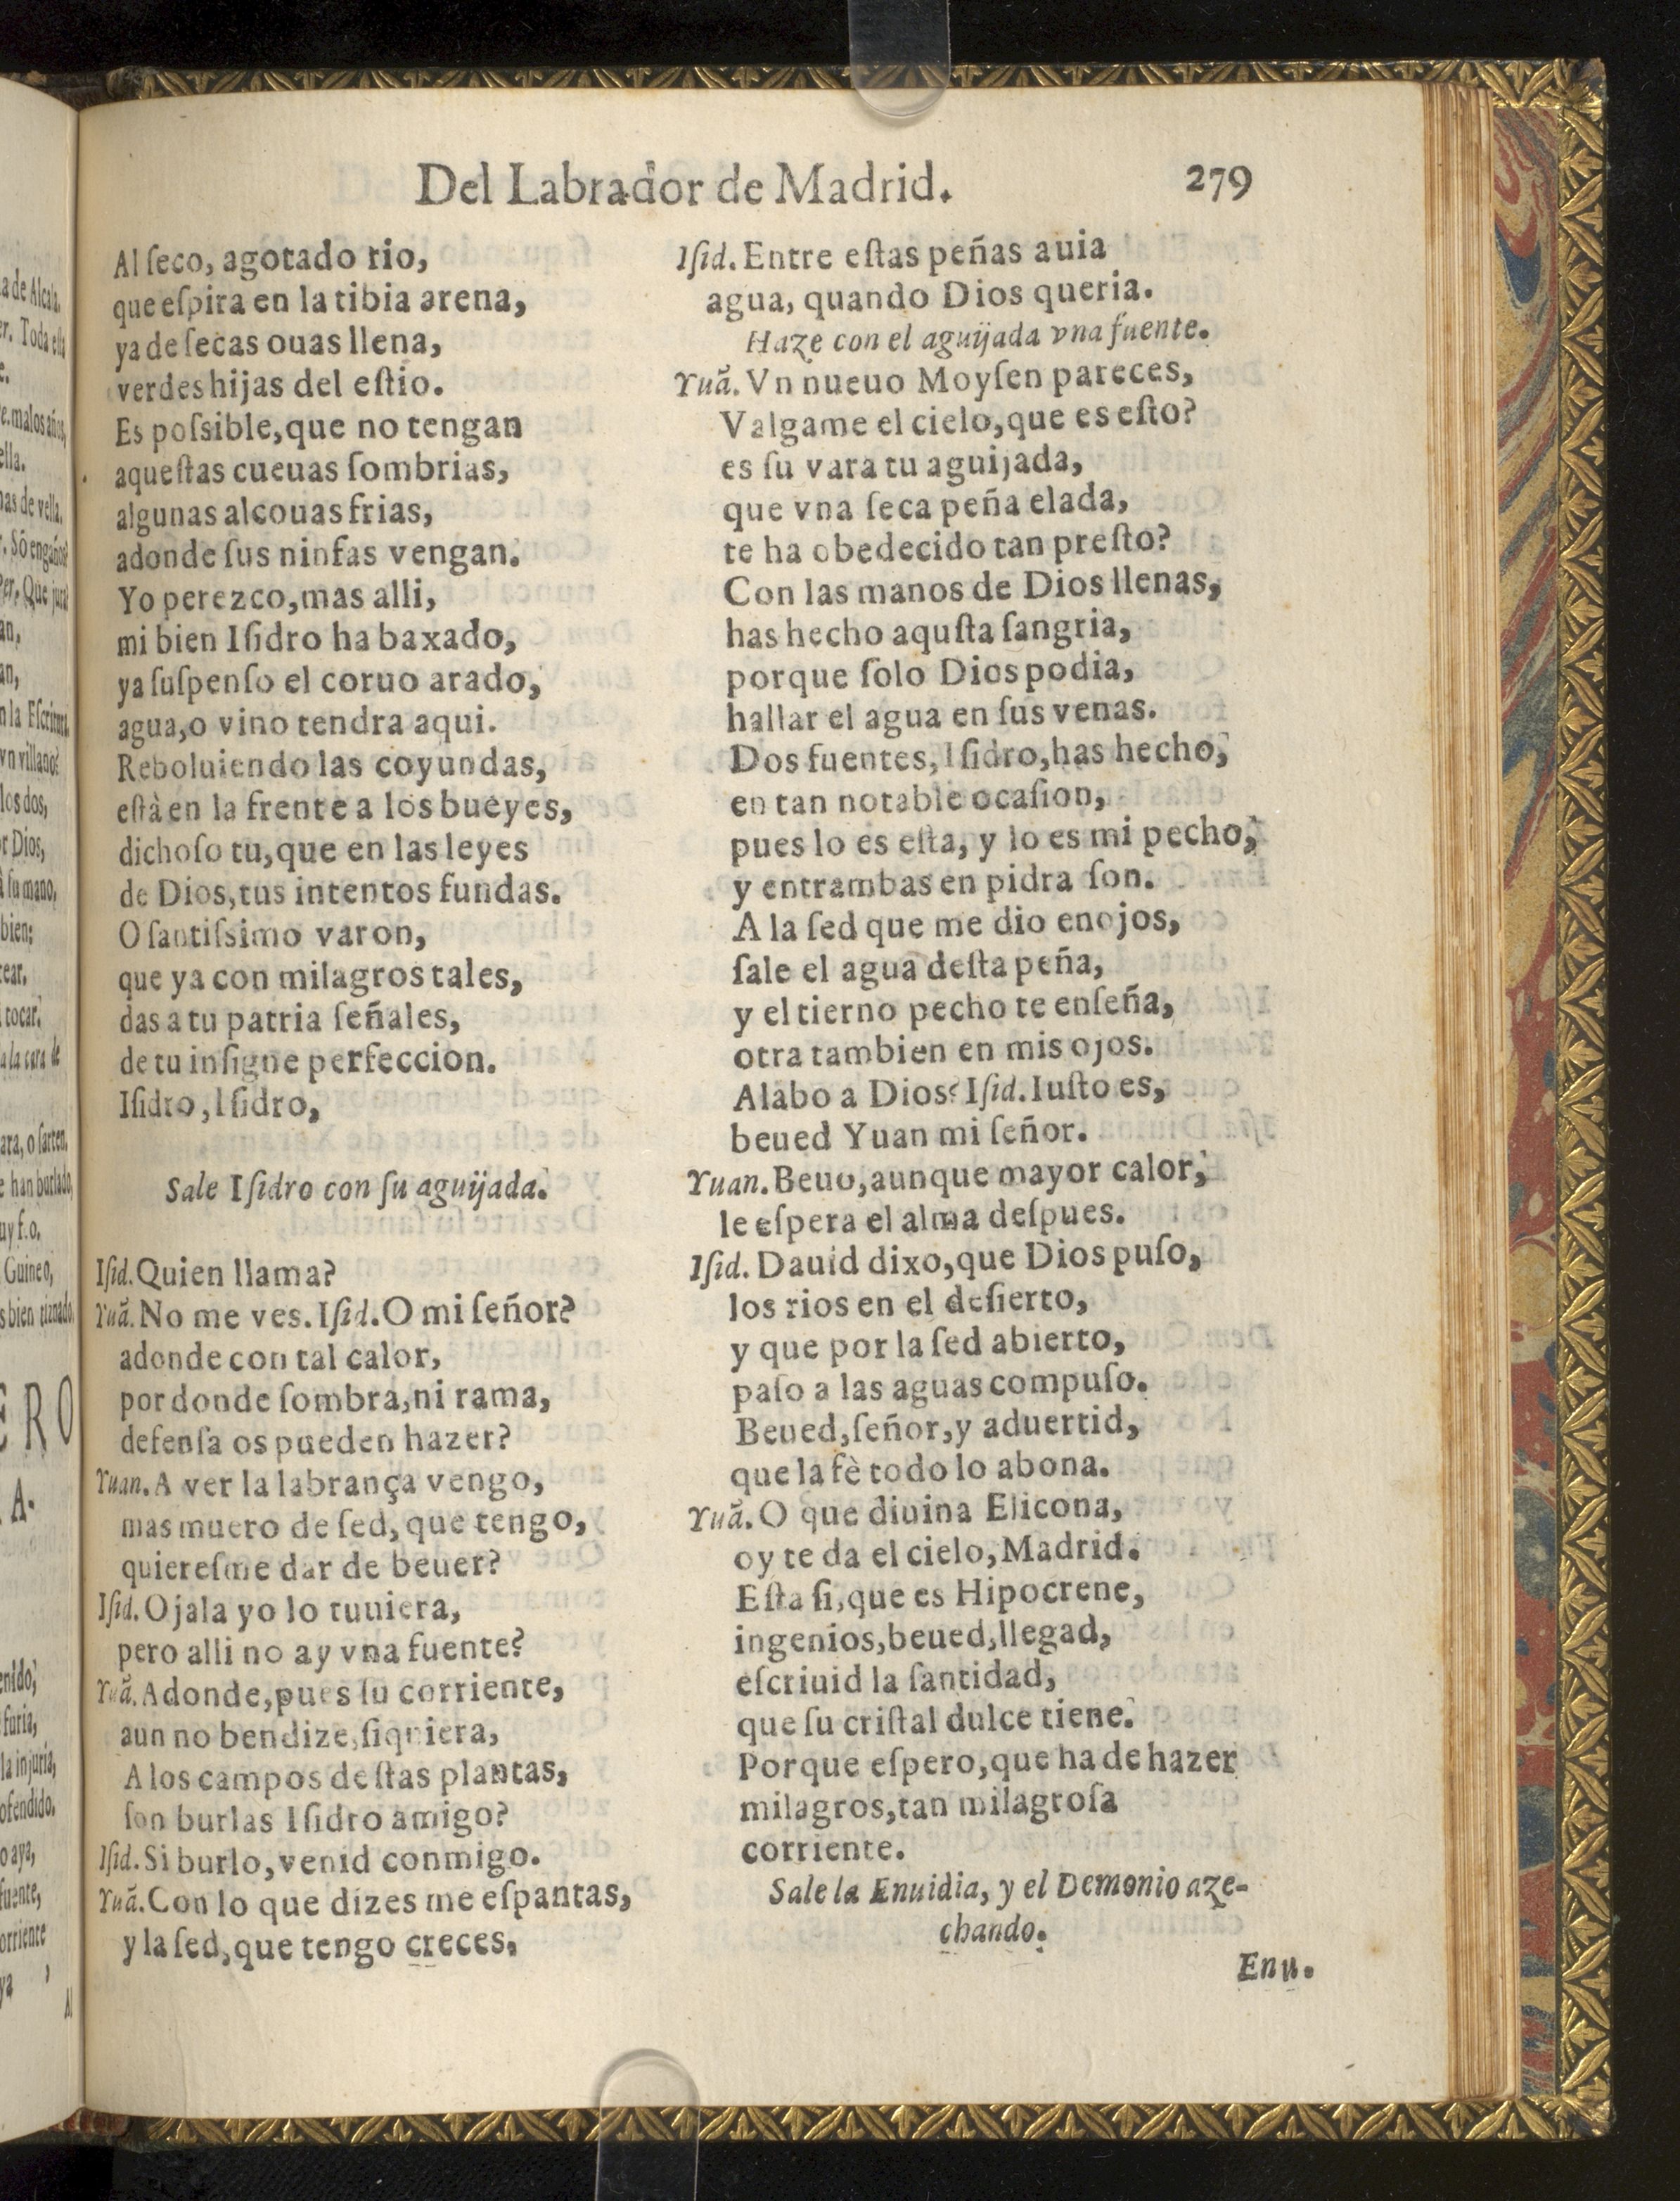 Del Labrador de Madrid.
279
Al ſeco, agotado rio,
que eſpira en la tibia arena,
ya de ſecas ouas llena,
verdes hijas del eſtio.
Es poſsible, que no tengan
aqueſtas cueuas ſombrias,
algunas alcouas frias,
adonde ſus ninfas vengan.
Yo perezco, mas alli,
mi bien Iſidro ha baxado,
ya ſuſpenſo el coruo arado,
agua, o vino tendra aqui.
Reboluiendo las coyundas,
eſtà en la frente a los bueyes,
dichoſo tu, que en las leyes
de Dios, tus intentos fundas.
O ſantiſsimo varon,
que ya con milagros tales,
das a tu patria ſeñales,
de tu inſigne perfeccion.
Iſidro, Iſidro,
Sale Iſidro con ſu aguijada.
Iſid. Quien llama?
Yuã. No me ves. Iſid. O mi ſeñor?
adonde con tal calor,
por donde ſombra, ni rama,
defenſa os pueden hazer?
Yuan. A ver la labrança vengo,
mas muero de ſed, que tengo,
quiereſme dar de beuer?
Iſid. Ojala yo lo tuuiera,
pero alli no ay vna fuente?
Yuã. Adonde, pues ſu corriente,
aun no bendize, ſiquiera,
A los campos deſtas plantas,
ſon burlas Iſidro amigo?
Iſid. Si burlo, venid conmigo.
Yuã. Con lo que dizes me eſpantas,
y la ſed, que tengo creces.
Iſid. Entre eſtas peñas auia
agua, quando Dios queria.
Haze con el aguijada vna fuente.
Yuã. Vn nueuo Moyſen pareces,
Valgame el cielo, que es eſto?
es ſu vara tu aguijada,
que vna ſeca peña elada,
te ha obedecido tan preſto?
Con las manos de Dios llenas,
has hecho aquſta ſangria,
porque ſolo Dios podia,
hallar el agua en ſus venas.
Dos fuentes, Iſidro, has hecho,
en tan notable ocaſion,
pues lo es eſta, y lo es mi pecho,
y entrambas en pidra ſon.
A la ſed que me dio enojos,
ſale el agua deſta peña,
y el tierno pecho te enſeña,
otra tambien en mis ojos.
Alabo a Dios? Iſid. Iuſto es,
beued Yuan mi ſeñor.
Yuan. Beuo, aunque mayor calor,
le eſpera el alma deſpues.
Iſid. Dauid dixo, que Dios puſo,
los rios en el deſierto,
y que por la ſed abierto,
paſo a las aguas compuſo.
Beued, ſeñor, y aduertid,
que la fè todo lo abona.
Yuã. O que diuina Elicona,
oy te da el cielo, Madrid.
Eſta ſi, que es Hipocrene,
ingenios, beued, llegad,
eſcriuid la ſantidad,
que ſu criſtal dulce tiene.
Porque eſpero, que ha de hazer
milagros, tan milagroſa
corriente.
Sale la Enuidia, y el Demonio aze-
chando.
Enu.